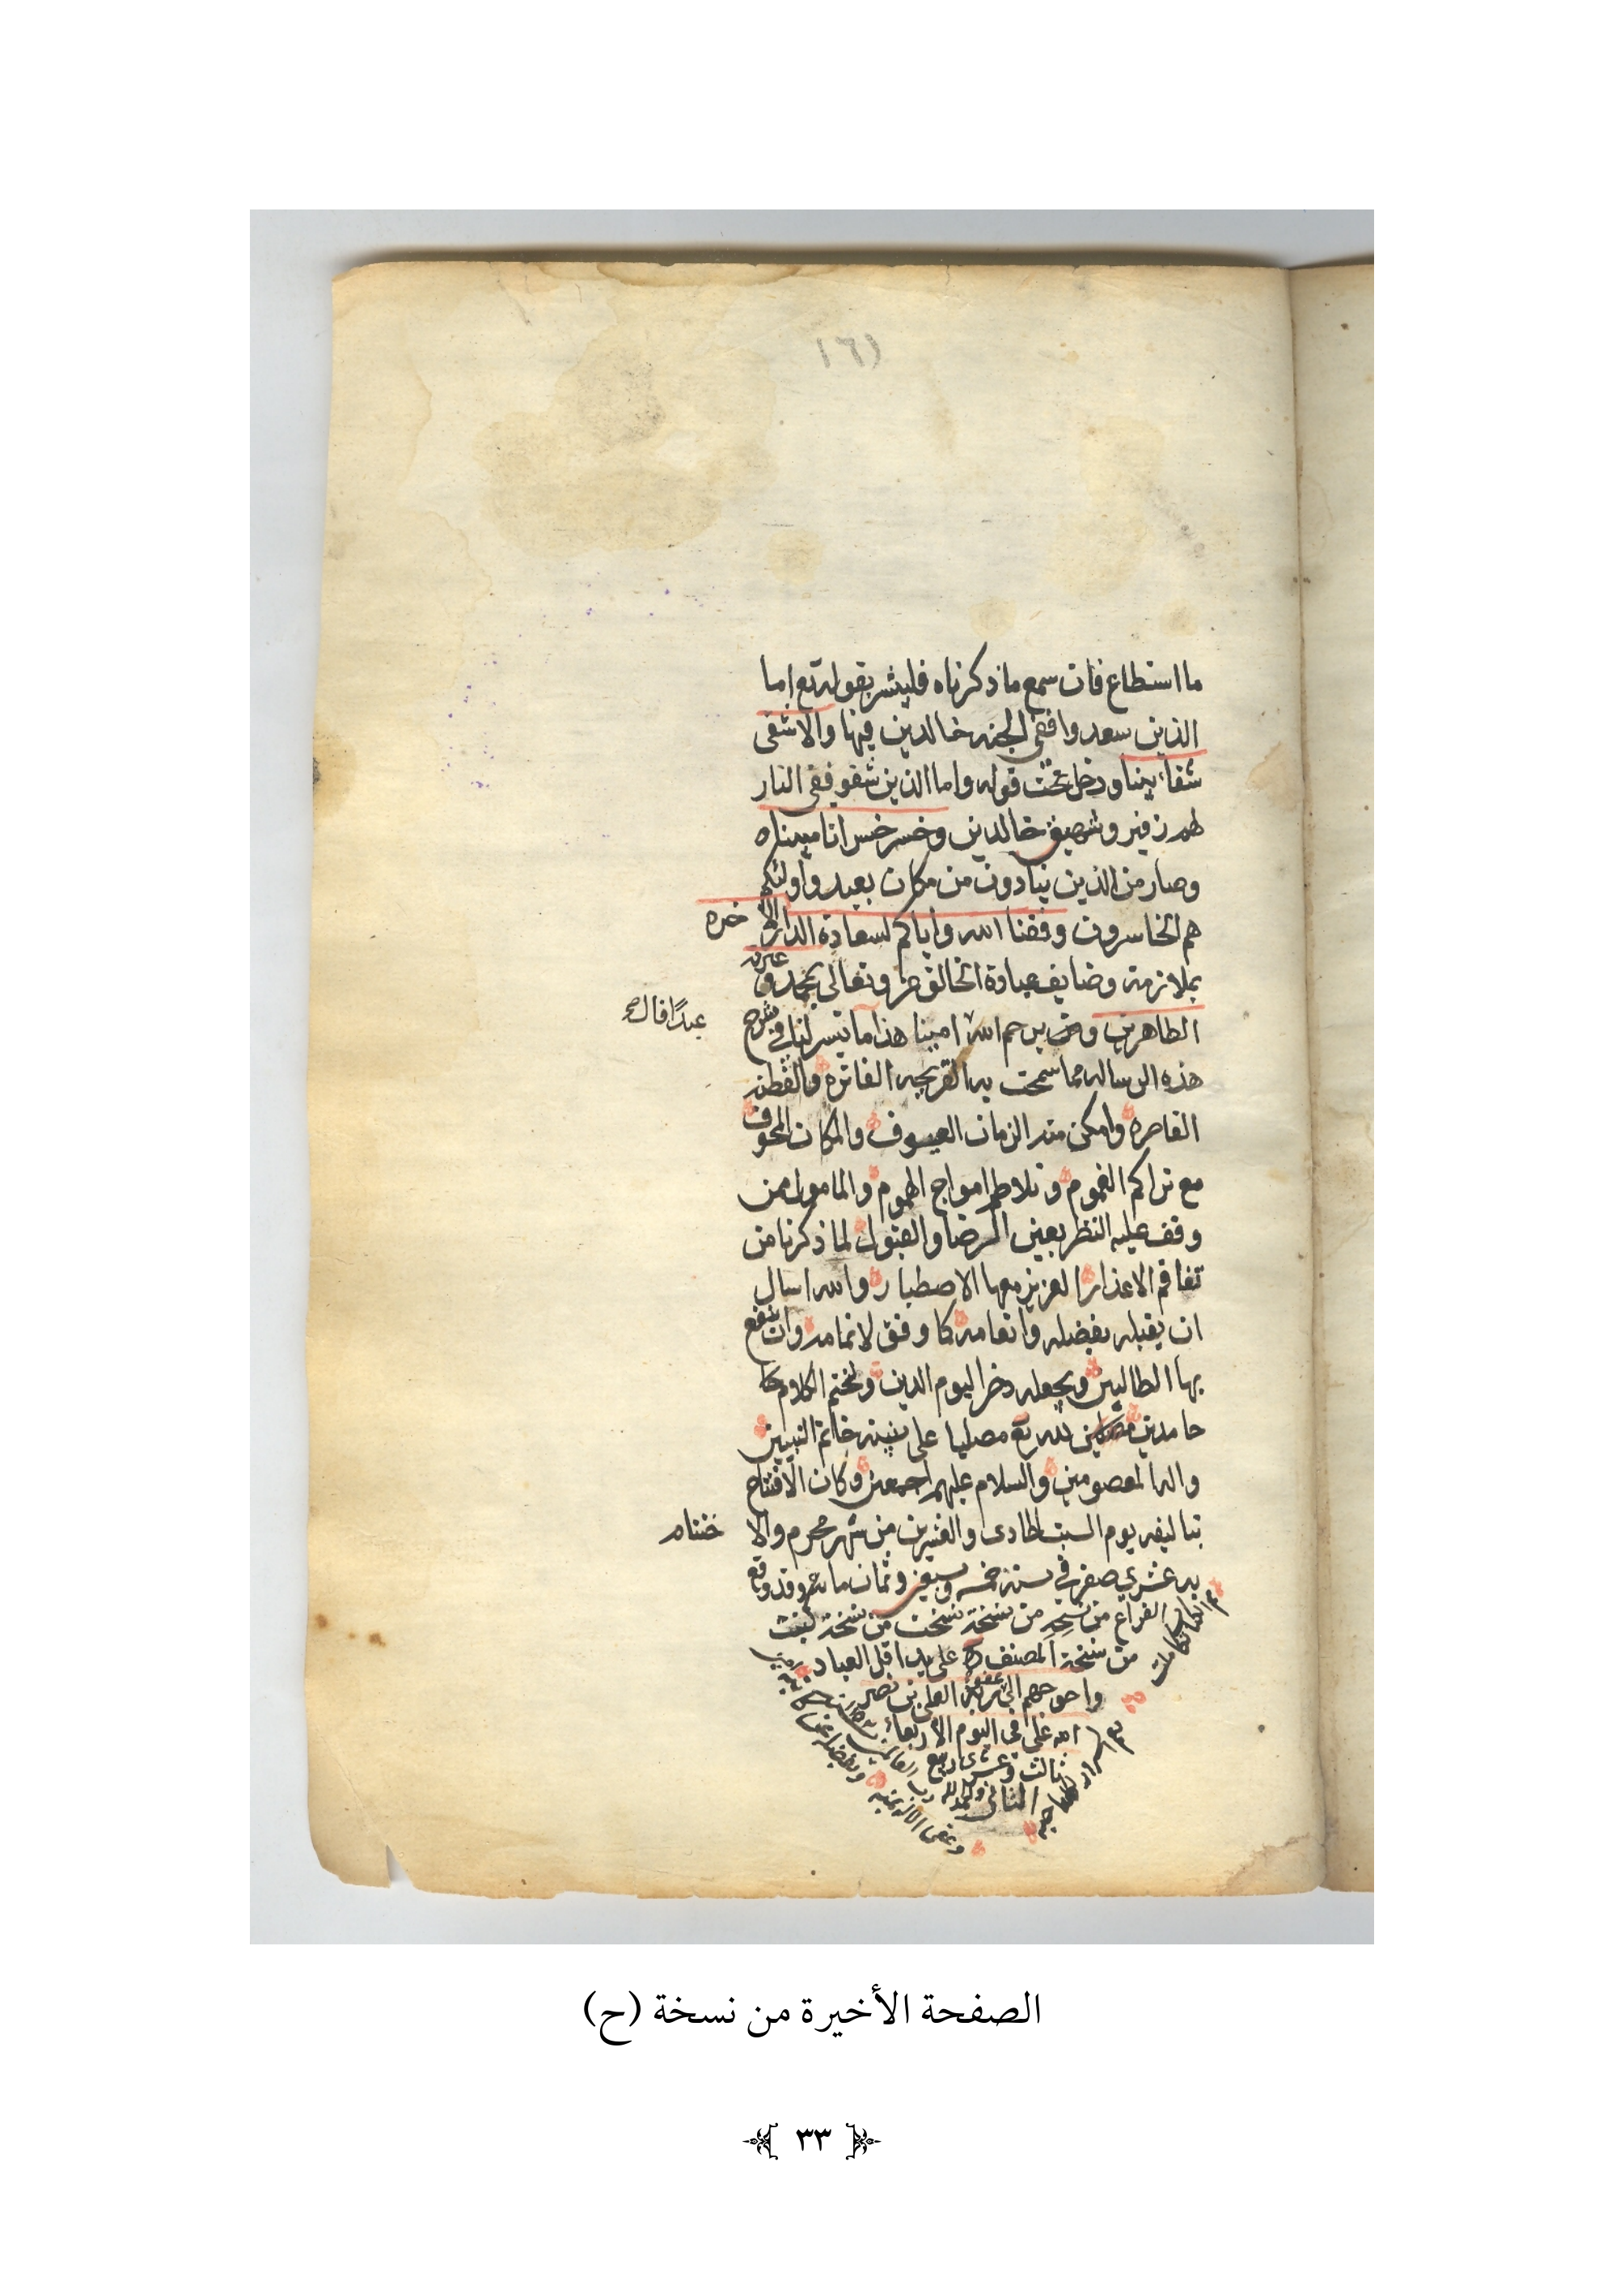 ١٦١
ما استطاع فان سمع ما ذكرناه فليبشر بقوله تع اما
الذين سعدوا ففي الجنه خالدين فيها والا شقى
شقاء بينا ودخل تحت قوله واما الذين شقو ففي النار
لهم زفير وشهيق خالدين وخسر خسرانا مبيناه
وصار من الذين ينادون من مكان بعيد واولئكم
هم الخاسرون وفقنا الله واياكم لسعادة الدار الاخره
بملازمة وضايف عبادة الخالق عز وتعالى بمحمد وعترته
الطاهرين ويرحم الله عبدًا قال امينا هذا ما تيسر لنا في شرح
هذه الرساله مما سمحت به القريحه الفاتره والفطنه
القاصره وامكن منه الزمان العسوف والمكان المخوف
مع تراكم الغموم وتلاطم امواج الهموم والمامول ممن
وقف عليه النظر بعين الرضا والقبول لما ذكرنا من
تفاقم الاعذار العزيز معها الاصطبار والله اسال
ان يقبله بفضله وانعامه كما وفق لاتمامه وان ينفع
بها الطالبين ويجعله ذخرا ليوم الدين ولنختم الكلام
حامدين لله تع مصليا على نبينه خاتم النبيين
واله المعصومين والسلام عليهم اجمعين وكان الافتتاح
بتاليفه يوم السبت الحادى والعشرين من شهر محرم والا ختتام
به عشري صفر في سنة خمسه وسبعين وثمان مائه وقد وقع
الفراغ من نسخه من نسخة نسخت من نسخة كتبت
من نسخة المصنف على يد اقل العباد
واحوجهم الى عفو ربه العلي بن نصر
الله على في اليوم الاربعاء
ثالث وعشرى ربيع
الثاني والحمد لله رب العالمين
الصفحة الأخيرة من نسخة (ح)
٣٣